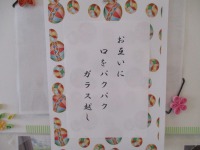 お互いに
口をパクパク
ガラス越し